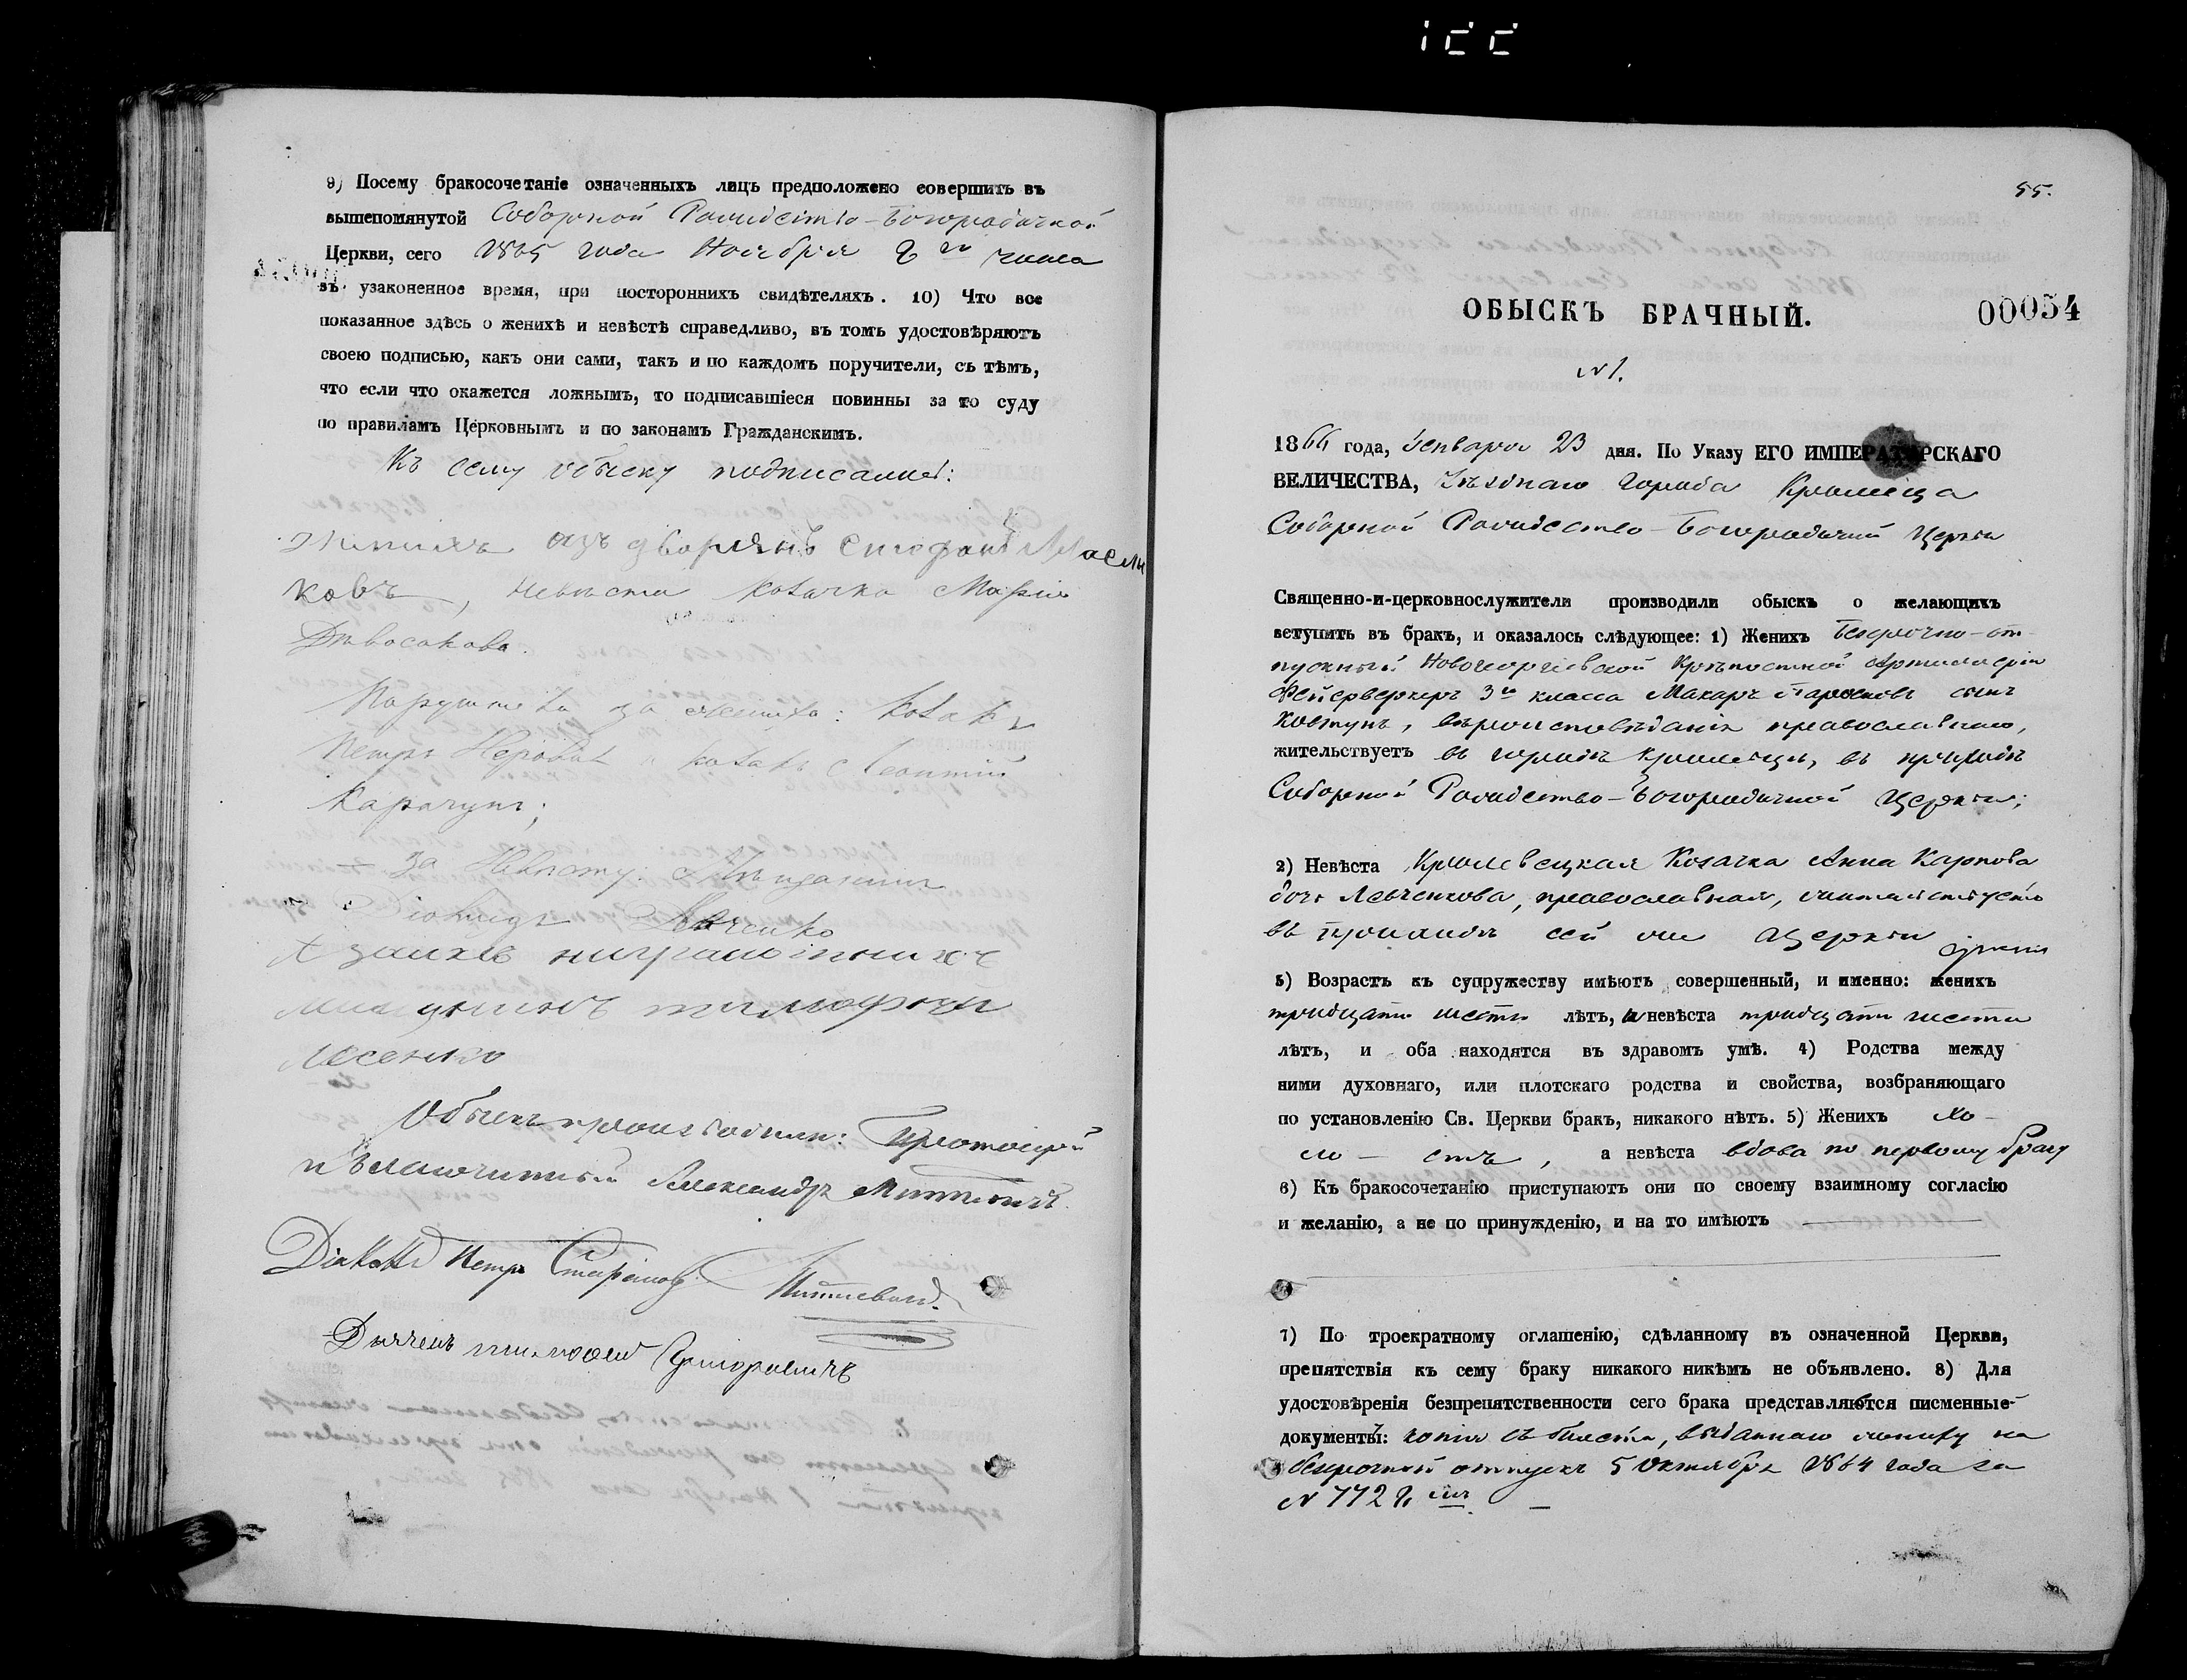 9) Посему бракосочетаніе означенныхъ лицъ предположено совершить въ
вышепомянутой Соборной Рождество-Богородичной
Церкви, сего 1865 года Ноября 8 го числа
въ узаконенное время, при постороннихъ свидѣтеляхъ. 10) Что все
показанное здѣсь о женихѣ и невѣстѣ справедливо, въ томъ удостовѣряютъ
своею подписью, какъ они сами, такъ и по каждомъ поручители, съ тѣмъ,
что если что окажется ложнымъ, то подписавшіеся повинны за то суду
по правиламъ Церковнымъ и по законамъ Гражданскимъ.
Къ сему обыску подписались:
Женихъ изъ дворянъ Стефанъ Масли
ковъ, невѣста козачка Марія
Дѣвосакова.
Поручители за жениха: козакъ
Петръ и козакъ Леонтій
Карачунъ;
— За Невѣсту: Мѣщанинъ
Діомидъ
А заихъ ниграмотнихъ
мищининъ тимофѣи
Лисенко
Обыскъ производили: Протоіерей
Александръ
Діаконъ Петръ
Дьячекъ тимофей Григоровичъ
55.
ОБЫСКЪ БРАЧНЫЙ. 00054
№ 1.
1866 года, Генваря 23 дня. По Указу ЕГО ИМПЕРАТОРСКАГО
ВЕЛИЧЕСТВА, Уѣзднаго города Кролевца
Соборной Рождество-Богородичной Церкви
Священно-и-церковнослужители производили обыскъ о желающихъ
вступить въ бракъ, и оказалось слѣдующее: 1) Женихъ Безсрочно-от-
пускный Новогеоргіевской Крѣпостной Артиллеріи
Фейерверкеръ 3го класса Макаръ сынъ
Ковтунъ, вѣроисповѣданія православнаго,
жительствуетъ въ городѣ Кролевцѣ, въ приходѣ
Соборной Рождество-Богородичной Церкви;
2) Невѣста Кролевецкая Козачка Анна Карпова
дочь Левченкова, православная, жительствуетъ
въ приходѣ сей же Церкви
3) Возрастъ къ супружеству имѣютъ совершенный, и именно: женихъ
тридцати шести лѣтъ, а невѣста тридцати шести
лѣтъ, и оба находятся въ здравомъ умѣ. 4) Родства между
ними духовнаго, или плотскаго родства и свойства, возбраняющаго
по установленію Св. Церкви бракъ, никакого нѣтъ. 5) Женихъ хо-
ло-стъ, а невѣста вдова по первому браку
6) Къ бракосочетанію приступаютъ они по своему взаимному согласію
и желанію, а не по принужденію, и на то имѣютъ
7) По троекратному оглашенію, сдѣланному въ означенной Церкви,
препятствія къ сему браку никакого никѣмъ не объявлено. 8) Для
удостовѣренія безпрепятственности сего брака представляются писменные
документы: копія съ билета, выданнаго жениху на
безсрочный отпускъ 5 Октября 1864 года за
№ 7728 мъ.